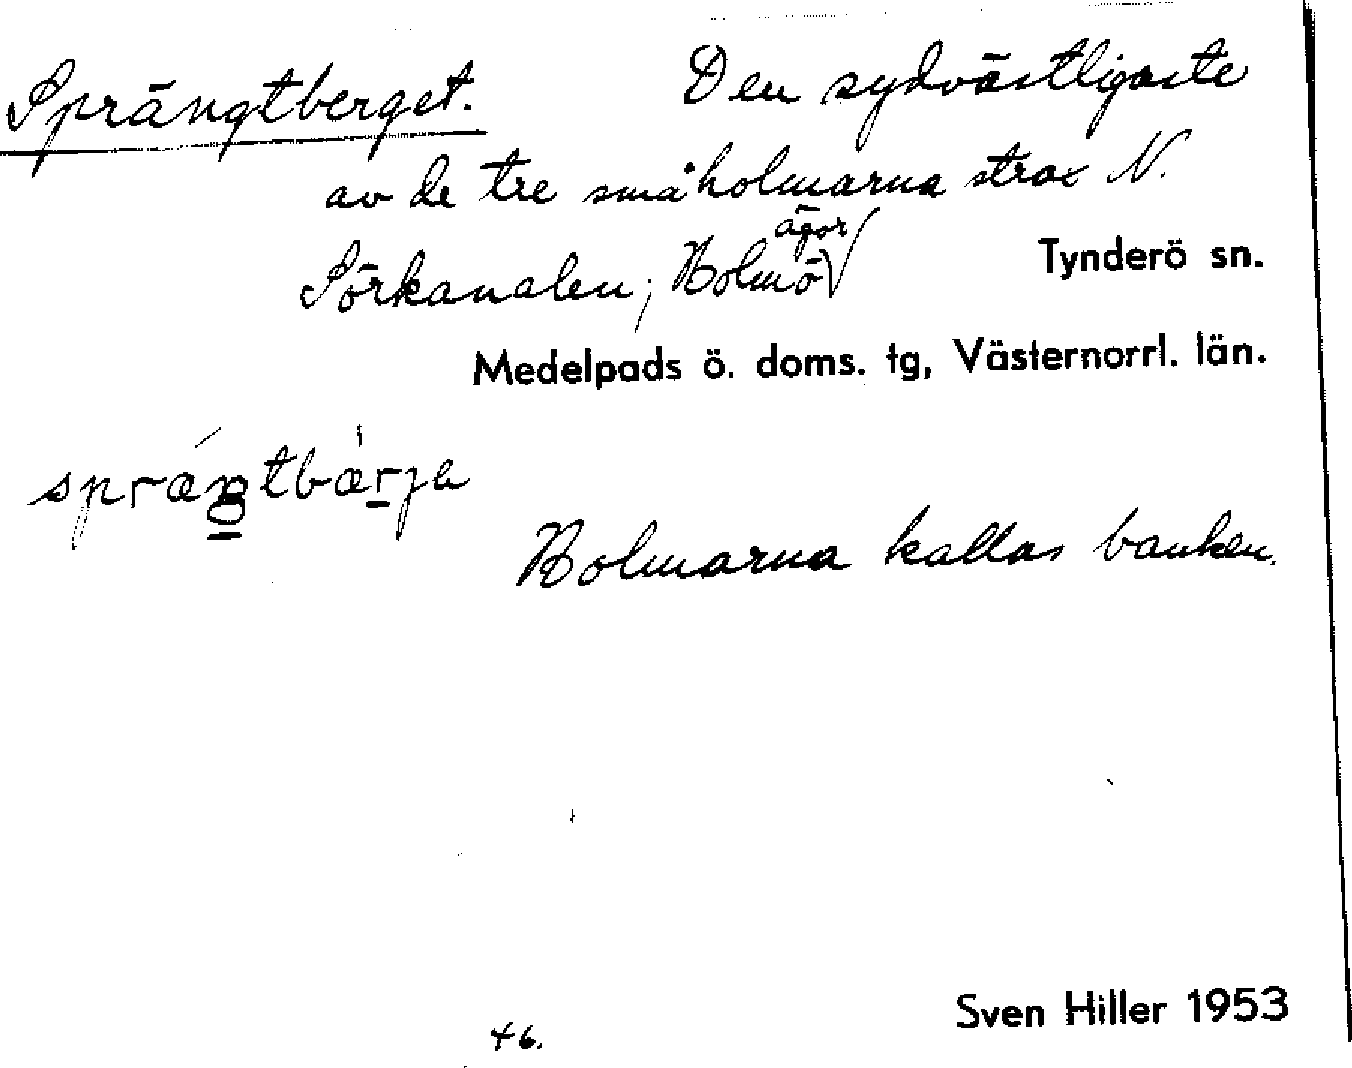 Sprängtberget. Den sydvästligaste
av de tre småholmarna strax N.
Sörkanalen; Holmö ägor Tynderö sn.
Medelpads ö. doms. tg, Västernorrl. län.
Holmarna kallas banken.
Sven Hiller 1953
46.